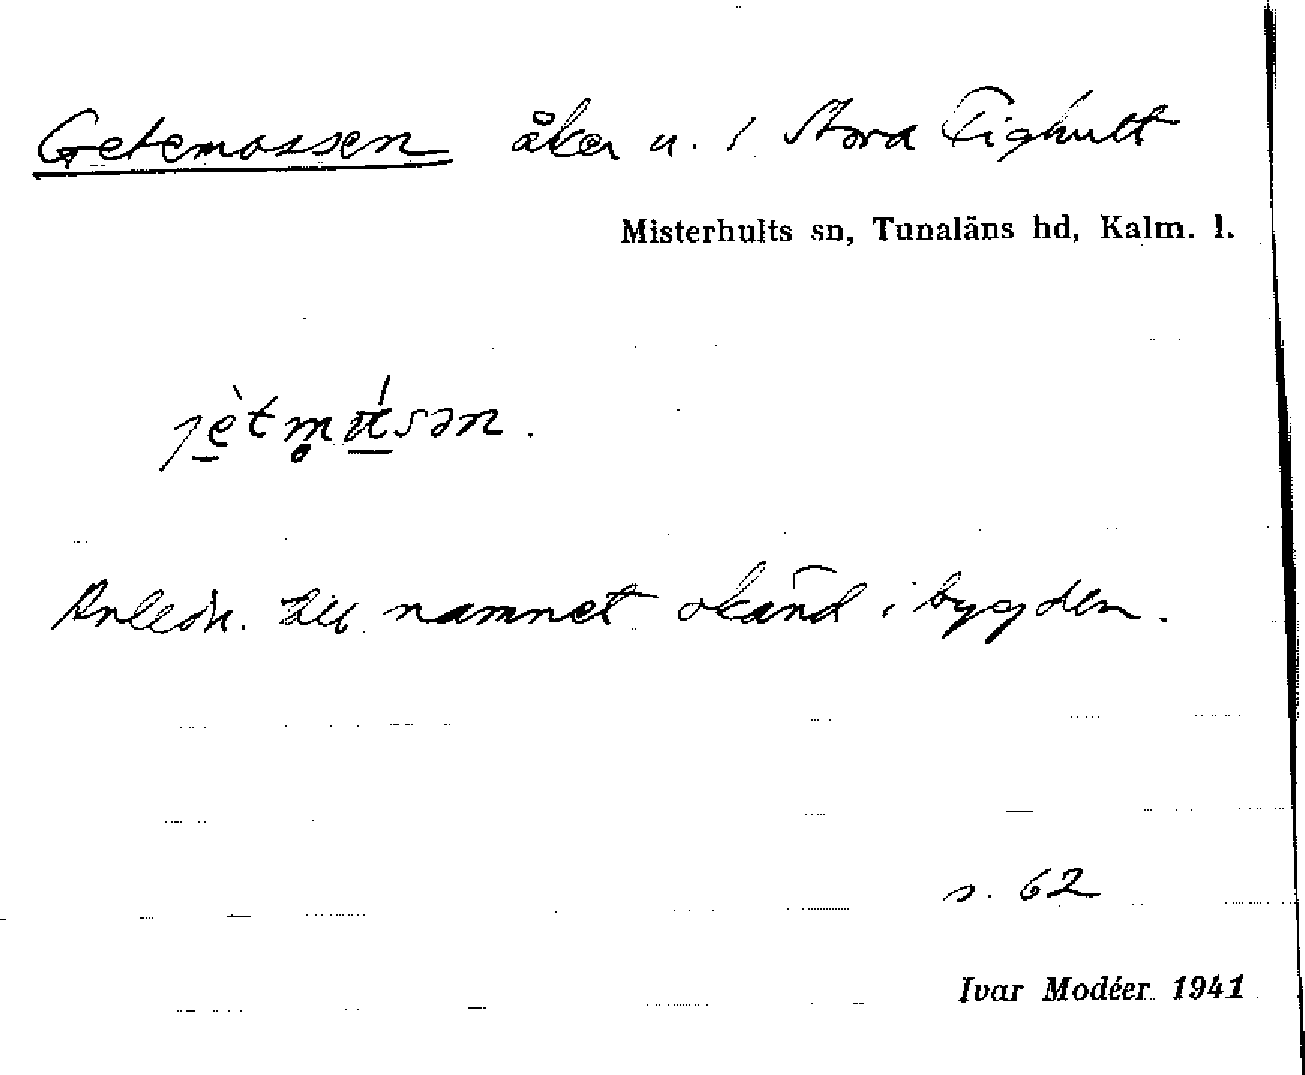 Getemossen åker u. 1 Stora Fighult
Misterhults sn, Tunaläns hd, Kalm. l.
Anledn. till namnet okänd i bygden.
s. 62
Ivar Modéer 1941